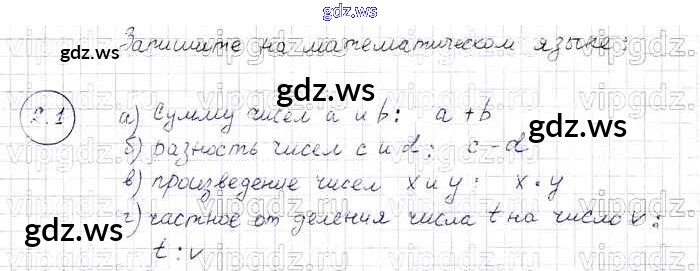 gdz.ws
Запишите на математическом языке:
2.1
а) Сумму чисел a и b: a + b
б) разность чисел c и d: c - d
в) произведение чисел x и y: x · y
г) частное от деления числа t на число v:
t : v